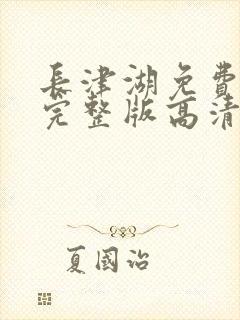 長津湖免費
完整版高清
夏國治